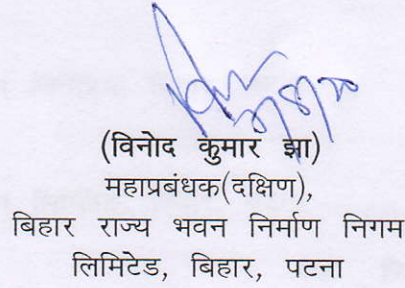 (विनोद कुमार झा)
महाप्रबंधक(दक्षिण),
बिहार राज्य भवन निर्माण निगम
लिमिटेड, बिहार, पटना